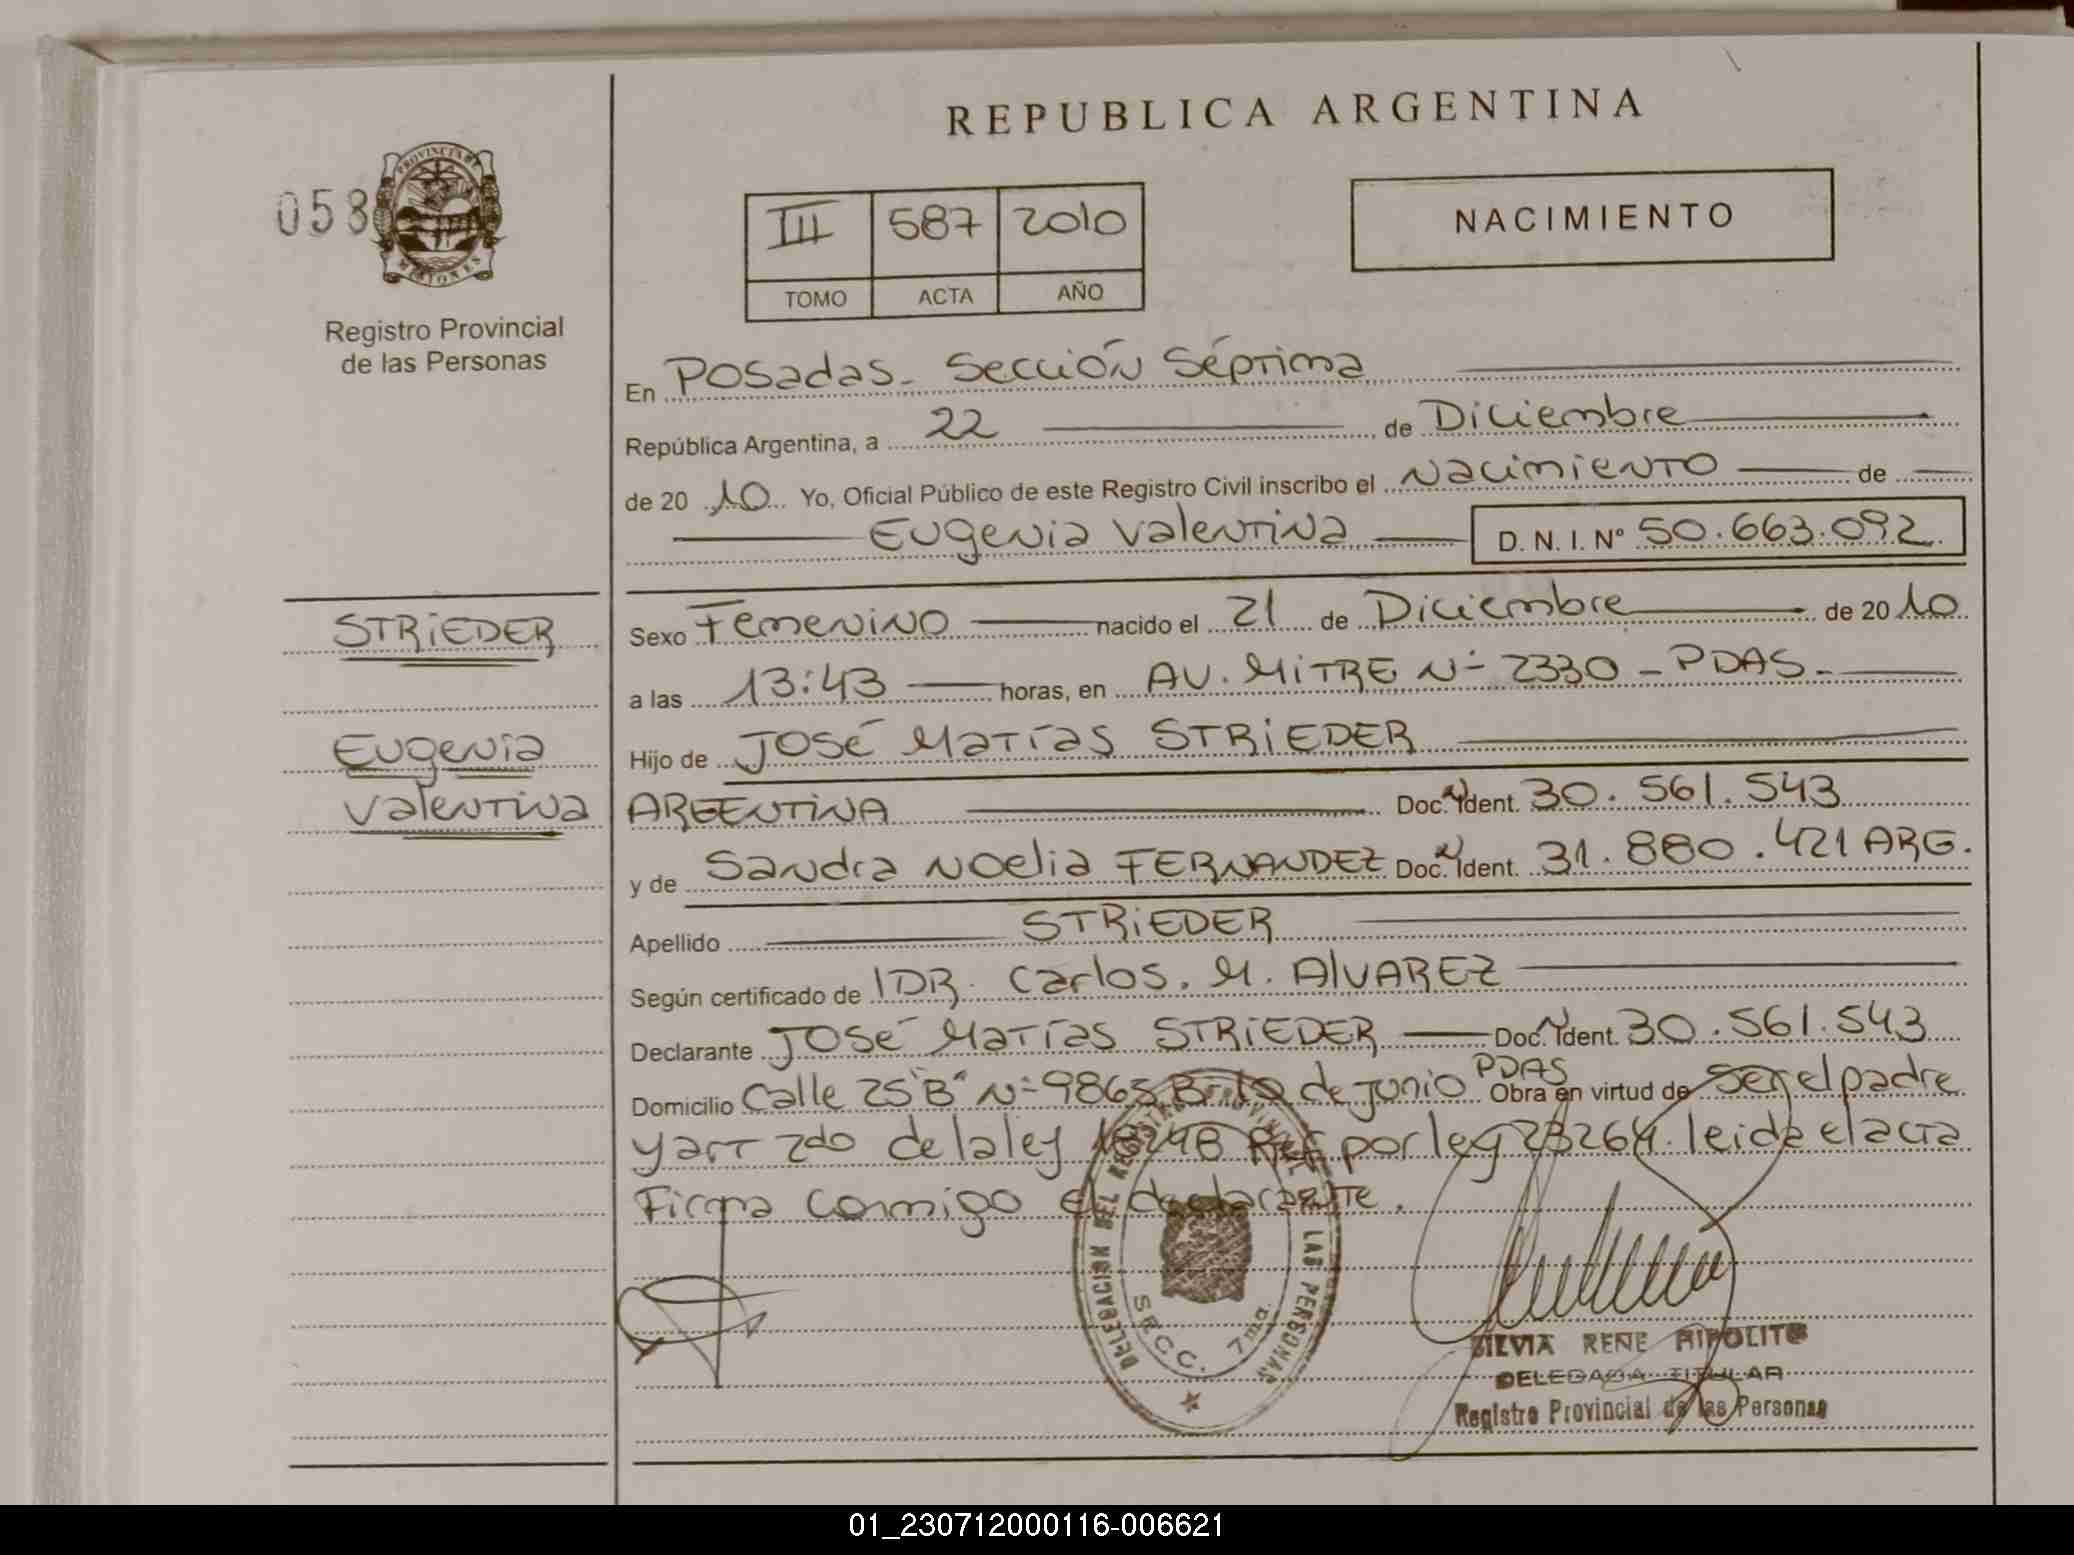 REPUBLICA ARGENTINA
058
PROVINCIA DE
MISIONES
Registro Provincial
de las Personas
III 587 2010
TOMO ACTA AÑO
NACIMIENTO
En Posadas. Sección Séptima
República Argentina, a 22 de Diciembre
de 20 10 Yo, Oficial Público de este Registro Civil inscribo el Nacimiento de
Eugenia Valentina D. N. I. Nº 50.663.092
STRIEDER
Eugenia
Valentina
Sexo Femenino nacido el 21 de Diciembre de 20 10
a las 13:43 horas, en AV. MITRE Nº 2330 - PDAS.
Hijo de José Matías STRIEDER
ARGENTINA Doc. Ident. 30.561.543
y de Sandra Noelia FERNANDEZ Doc. Ident. 31.880.421 ARG.
Apellido STRIEDER
Según certificado de DR. Carlos. M. AlVAREZ
Declarante José Matías STRIEDER Doc. Ident. 30.561.543
Domicilio Calle 25 "B" Nº 9865 Bº 10 de junio PDAS Obra en virtud de ser el padre
y art 2do de la ley 18248 Ref por ley 23264. leida el acta
Firma conmigo el declarante.
DELEGACION DEL REGISTRO PROVINCIAL DE LAS PERSONAS
SECC. 7ma.
SILVIA RENE HIPOLITO
DELEGADA TITULAR
Registro Provincial de las Personas
01_230712000116-006621